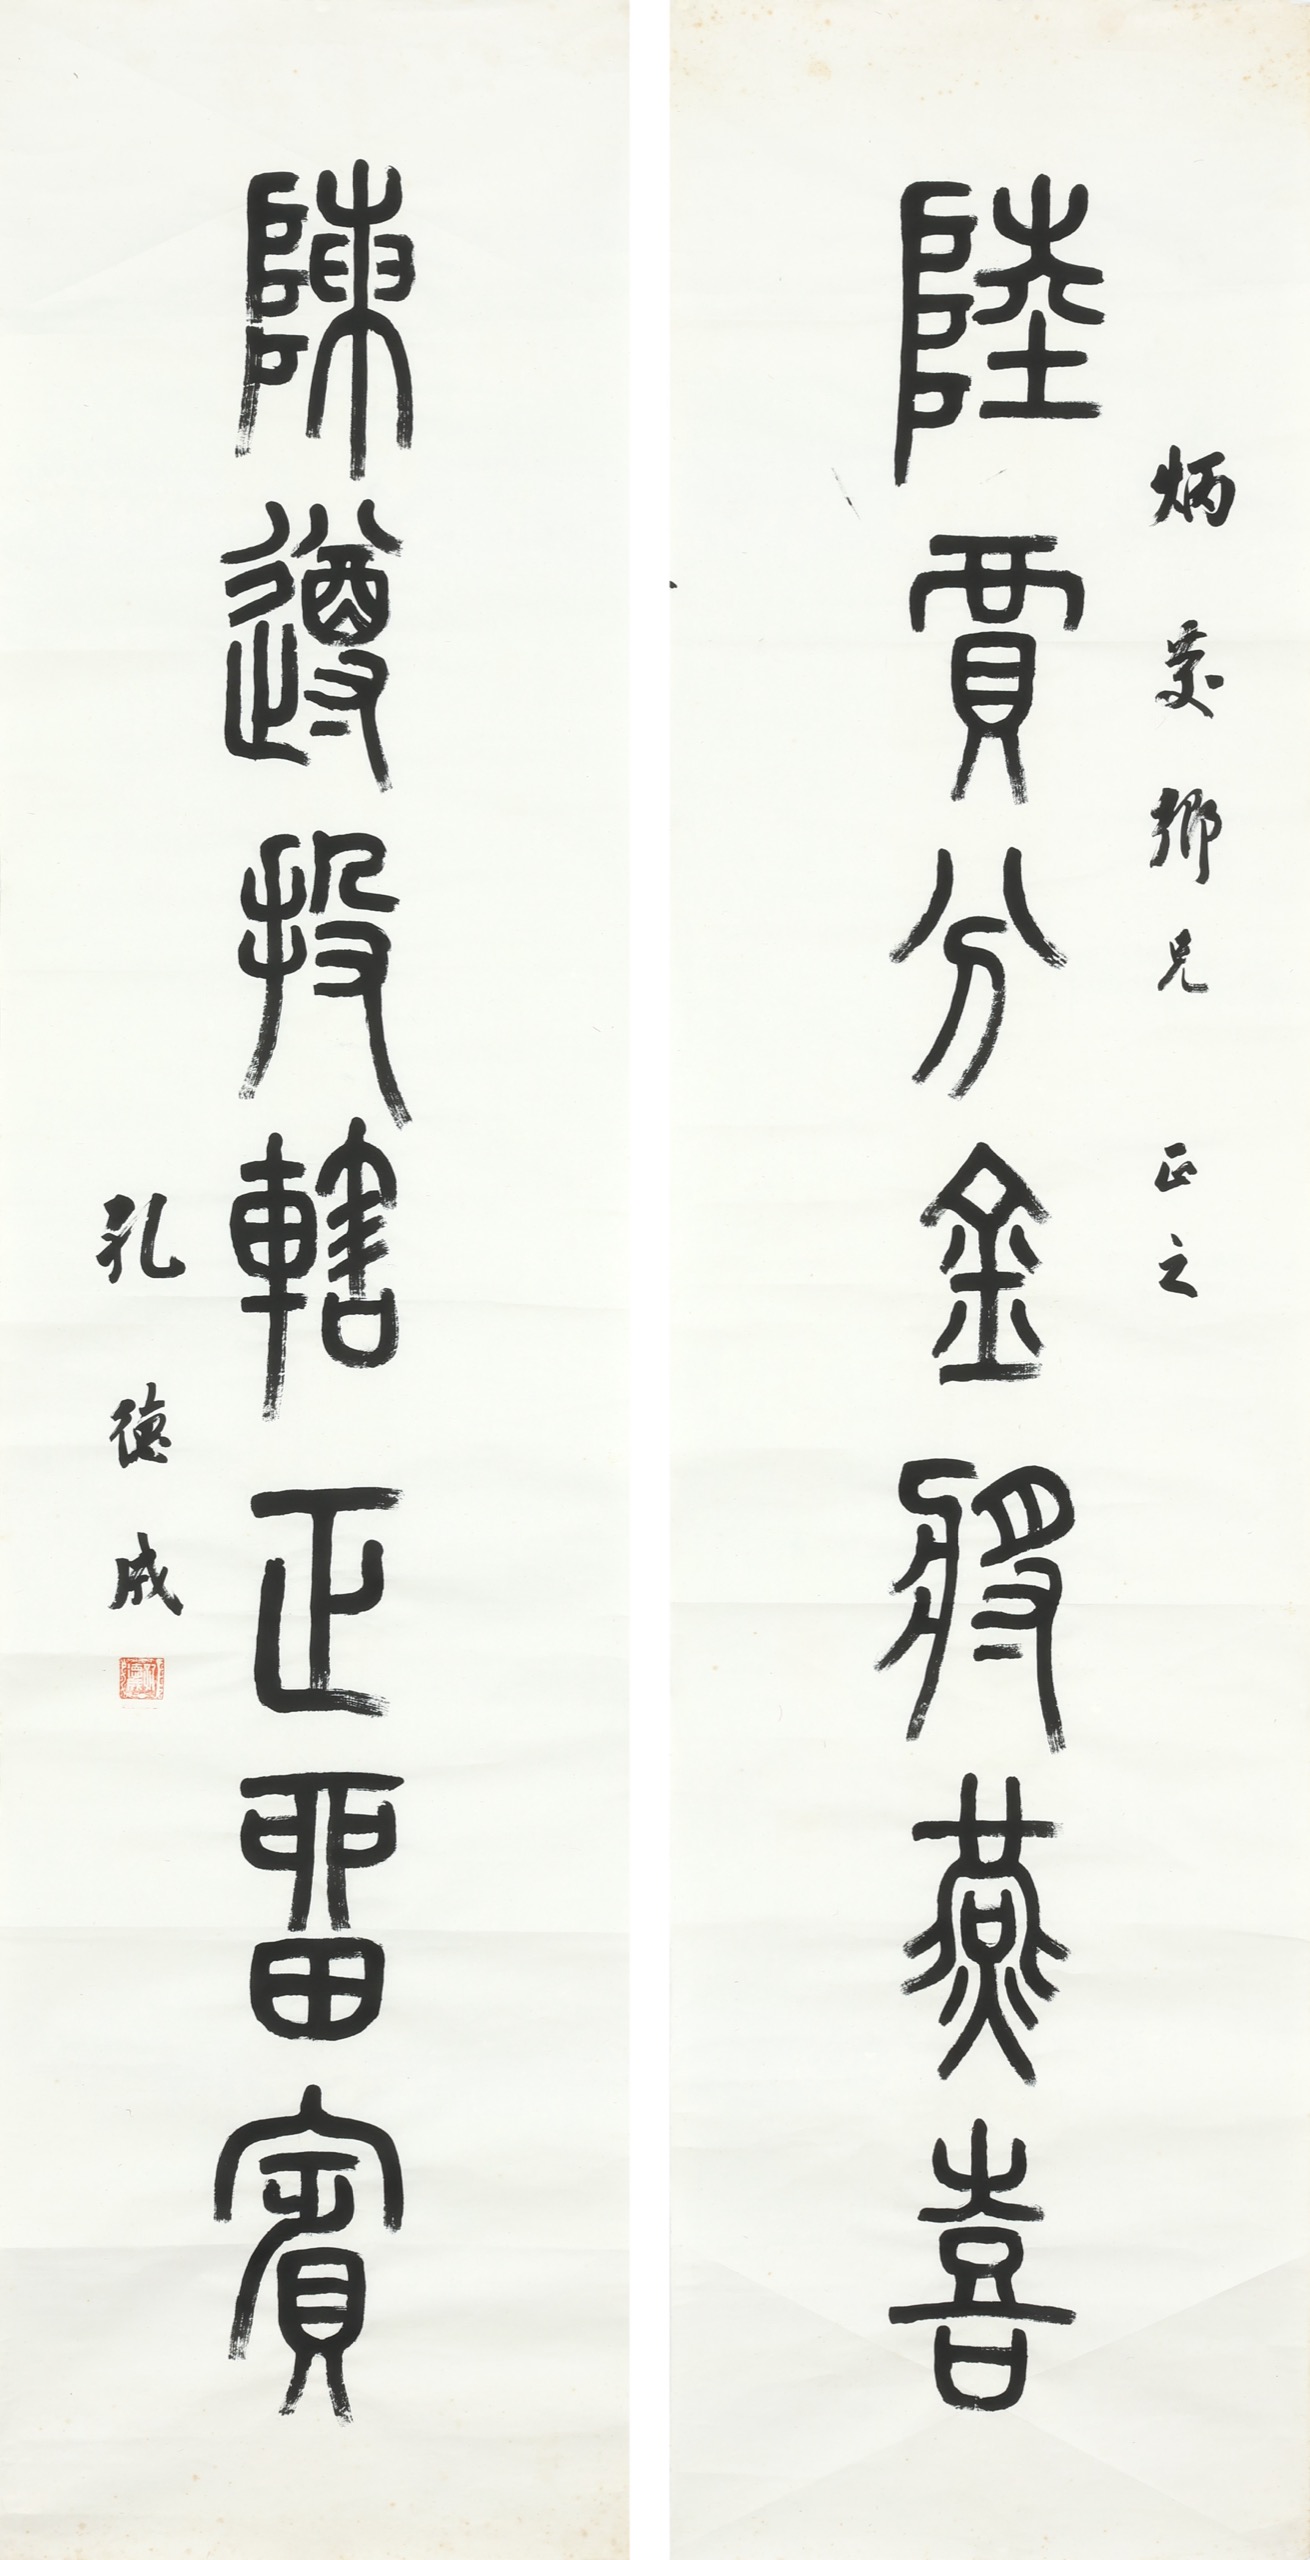 炳鄉兄 正之
陸賈分金將燕喜
陳遵投轄正畱賓
孔德成